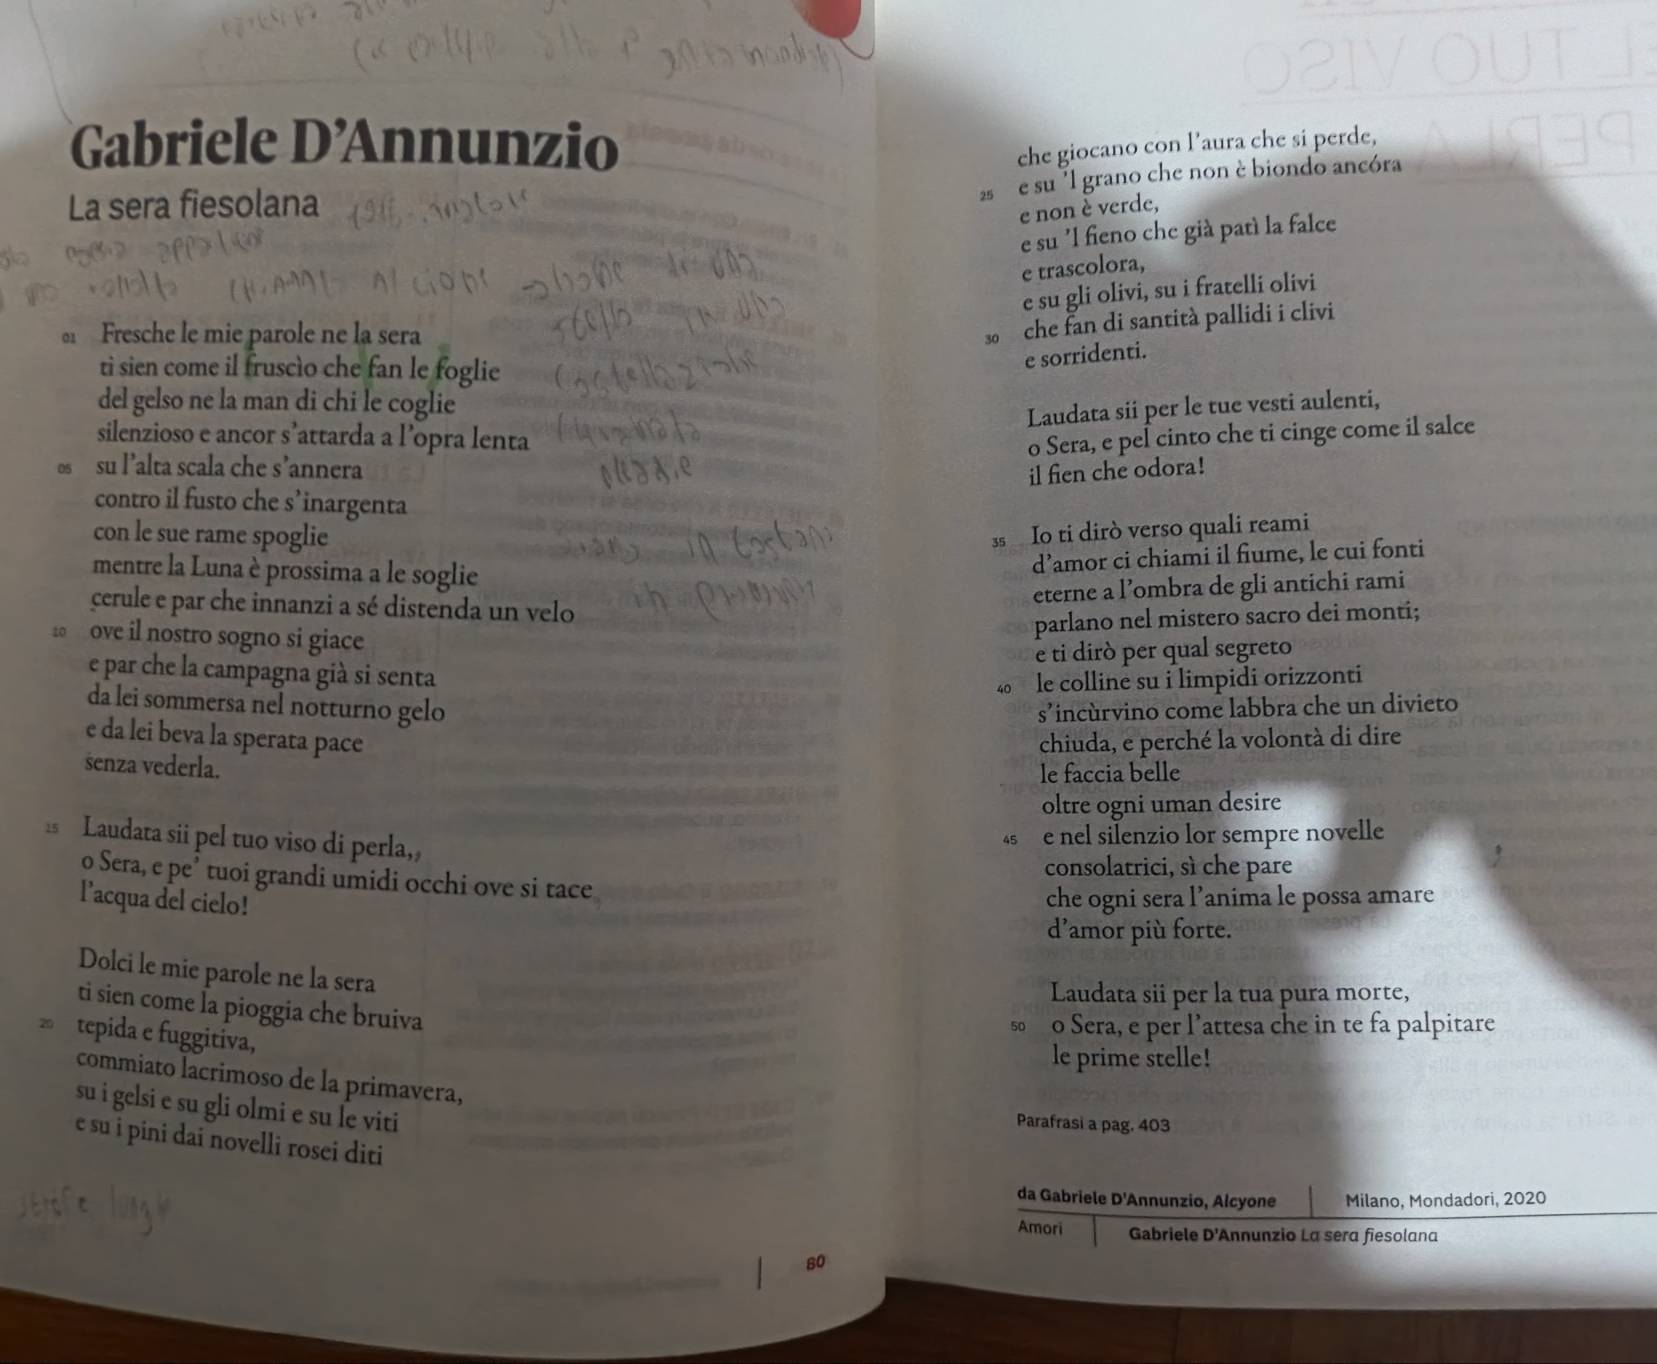 Gabriele D'Annunzio
La sera fiesolana
01 Fresche le mie parole ne la sera
ti sien come il fruscìo che fan le foglie
del gelso ne la man di chi le coglie
silenzioso e ancor s'attarda a l'opra lenta
05 su l'alta scala che s'annera
contro il fusto che s'inargenta
con le sue rame spoglie
mentre la Luna è prossima a le soglie
cerule e par che innanzi a sé distenda un velo
10 ove il nostro sogno si giace
e par che la campagna già si senta
da lei sommersa nel notturno gelo
e da lei beva la sperata pace
senza vederla.
15 Laudata sii pel tuo viso di perla,
o Sera, e pe' tuoi grandi umidi occhi ove si tace
l'acqua del cielo!
Dolci le mie parole ne la sera
ti sien come la pioggia che bruiva
20 tepida e fuggitiva,
commiato lacrimoso de la primavera,
su i gelsi e su gli olmi e su le viti
e su i pini dai novelli rosei diti
strofe lunghe
80
che giocano con l'aura che si perde,
25 e su 'l grano che non è biondo ancóra
e non è verde,
e su 'l fieno che già patì la falce
e trascolora,
e su gli olivi, su i fratelli olivi
30 che fan di santità pallidi i clivi
e sorridenti.
Laudata sii per le tue vesti aulenti,
o Sera, e pel cinto che ti cinge come il salce
il fien che odora!
35 Io ti dirò verso quali reami
d'amor ci chiami il fiume, le cui fonti
eterne a l'ombra de gli antichi rami
parlano nel mistero sacro dei monti;
e ti dirò per qual segreto
40 le colline su i limpidi orizzonti
s'incùrvino come labbra che un divieto
chiuda, e perché la volontà di dire
le faccia belle
oltre ogni uman desire
45 e nel silenzio lor sempre novelle
consolatrici, sì che pare
che ogni sera l'anima le possa amare
d'amor più forte.
Laudata sii per la tua pura morte,
50 o Sera, e per l'attesa che in te fa palpitare
le prime stelle!
Parafrasi a pag. 403
da Gabriele D'Annunzio, Alcyone Milano, Mondadori, 2020
Amori Gabriele D'Annunzio La sera fiesolana